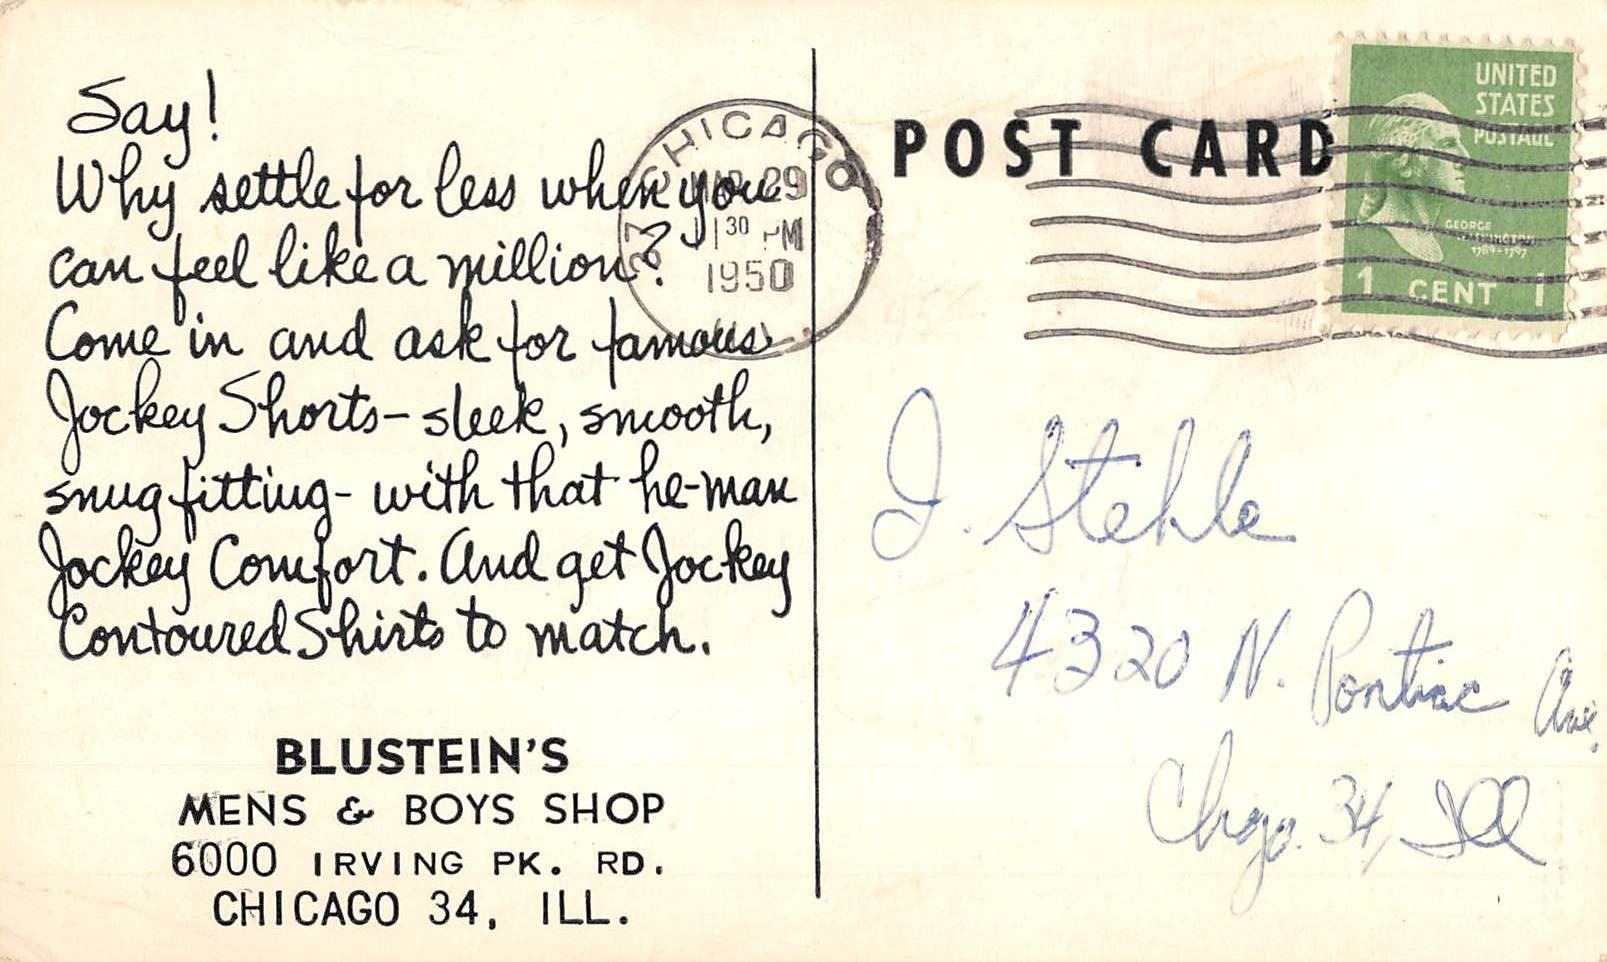 Say!
Why settle for less when you
can feel like a million?
Come in and ask for famous
Jockey Shorts – sleek, smooth,
snug fitting - with that he-man
Jockey Comfort. And get Jockey
Contoured Shirts to match.
BLUSTEIN'S
MENS & BOYS SHOP
6000 IRVING PK. RD.
CHICAGO 34, ILL.
CHICAGO
29
30 PM
1950
POST CARD
UNITED
STATES
POSTAGE
GEORGE
WASHINGTON
1 CENT 1
J. Stehle
4320 N. Pontiac Ave.
Chgo. 34, Ill